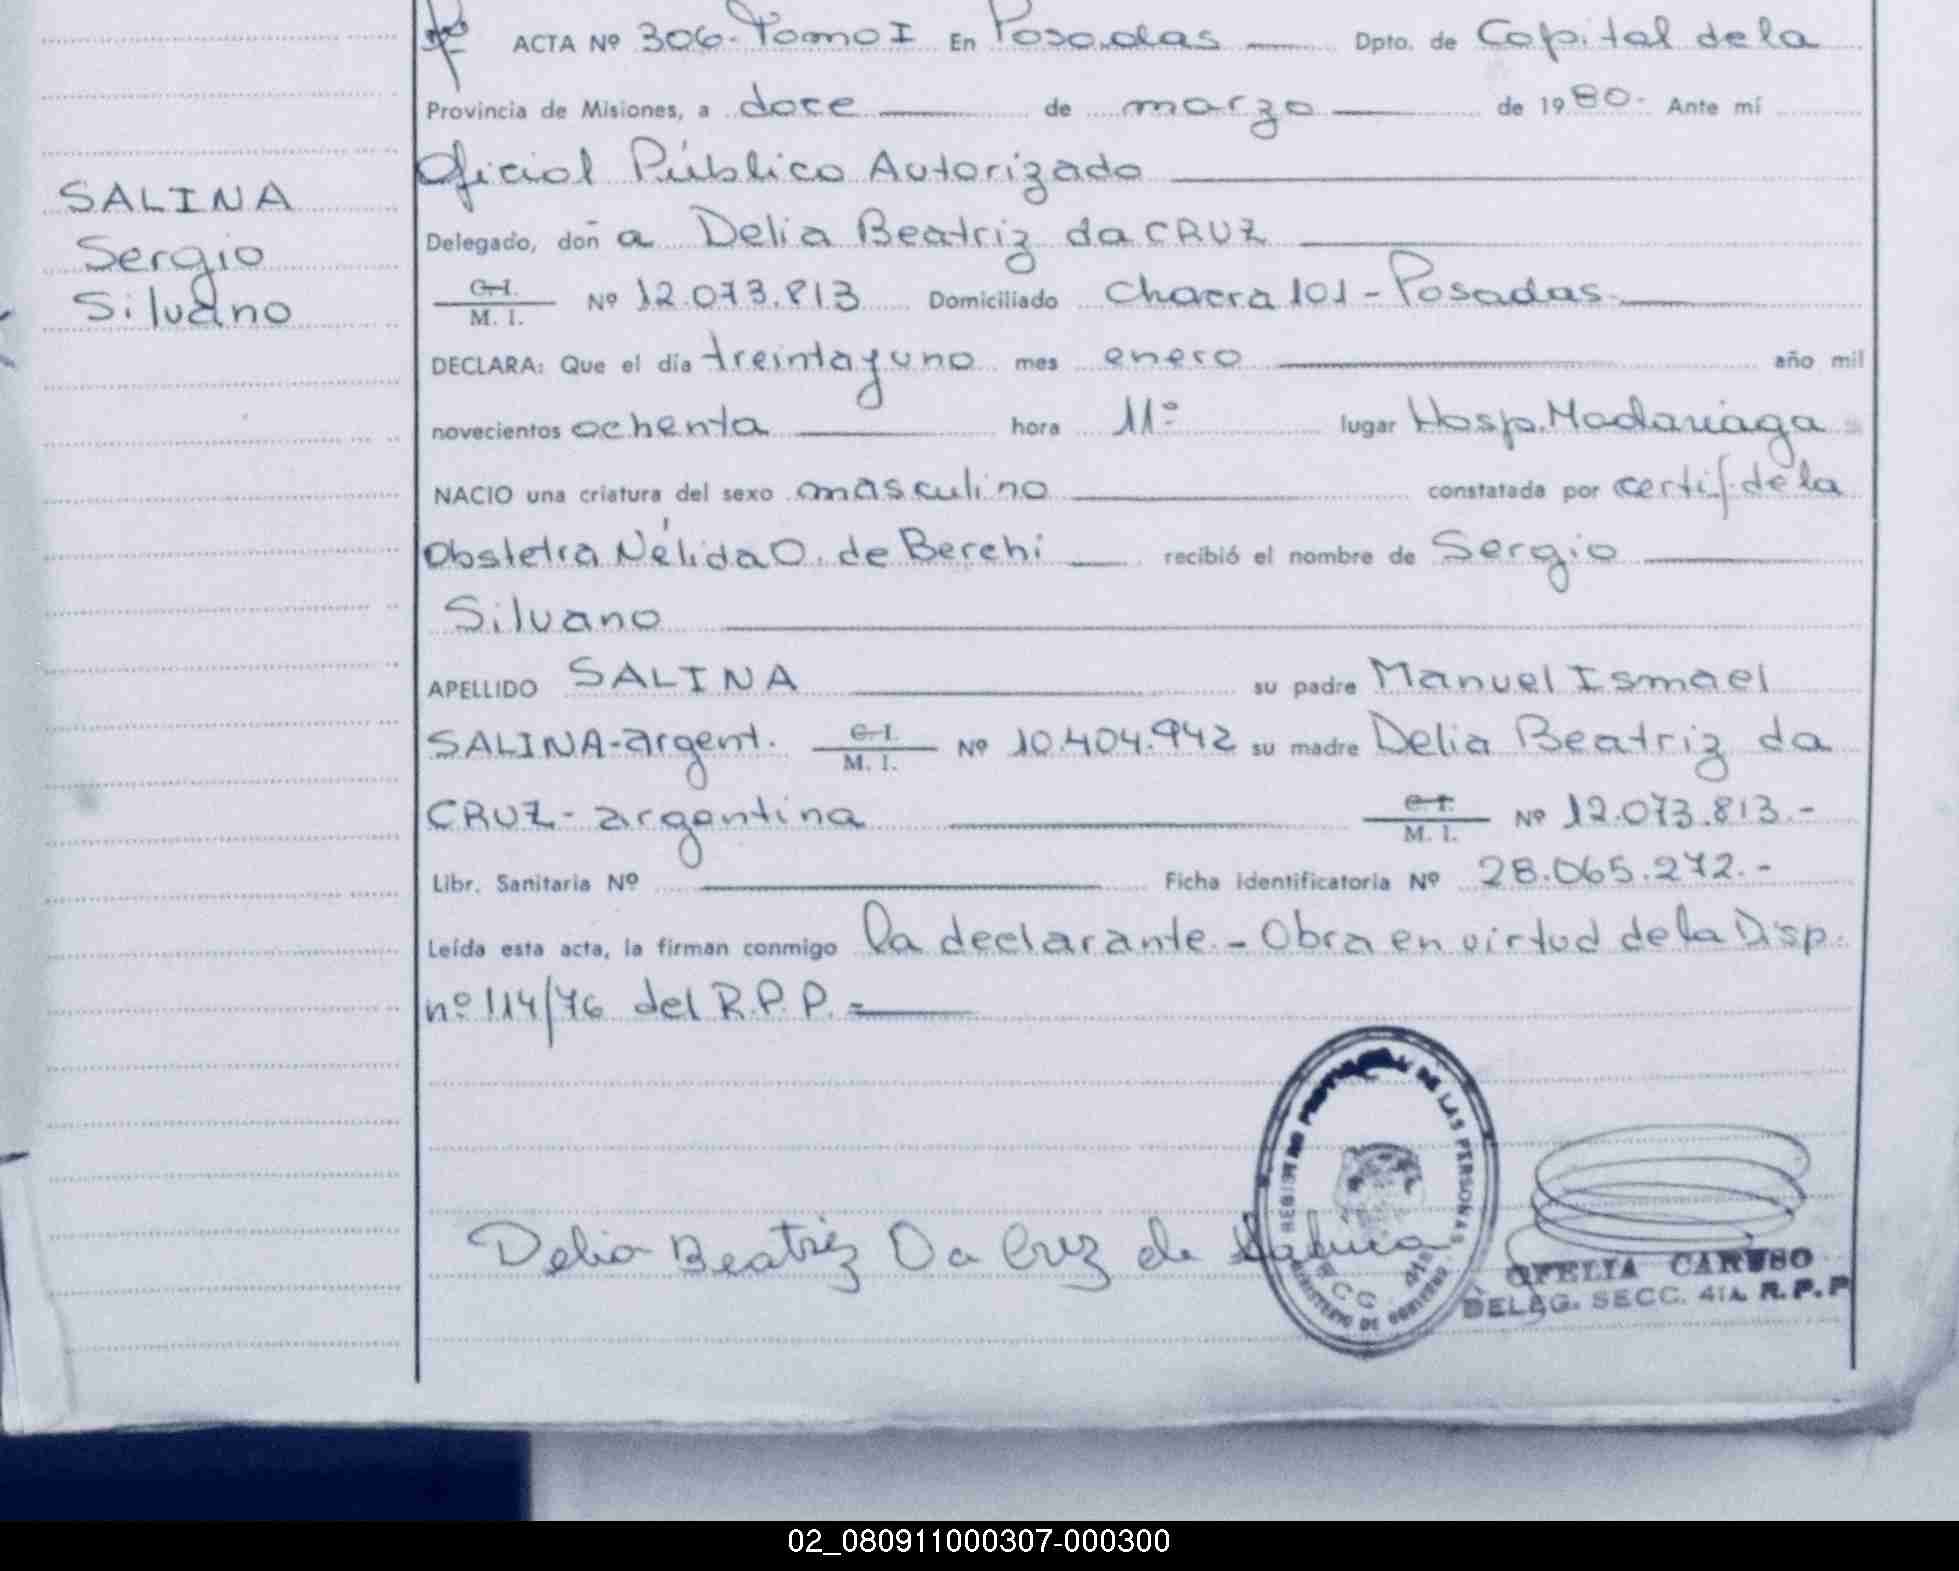 ACTA Nº 306-Tomo I En Posadas Dpto. de Capital de la
Provincia de Misiones, a doce de marzo de 1980- Ante mí
Oficial Público Autorizado
SALINA
Sergio
Silvano
Delegado, doña Delia Beatriz da CRUZ
C.I.
M. I. Nº 12.073.813 Domiciliado Chacra 101-Posadas-
DECLARA: Que el día treinta y uno mes enero año mil
novecientos ochenta hora 11º lugar Hosp. Madariaga
NACIO una criatura del sexo masculino constatada por certif. de la
Obstetra Nélida O. de Berchi recibió el nombre de Sergio
Silvano
APELLIDO SALINA su padre Manuel Ismael
SALINA-argent. C.I.
M. I. Nº 10.404.942 su madre Delia Beatriz da
CRUZ-argentina C.I.
M. I. Nº 12.073.813.-
Libr. Sanitaria Nº Ficha identificatoria Nº 28.065.272.-
Leída esta acta, la firman conmigo la declarante.- Obra en virtud de la Disp.
nº 114/76 del R.P.P.=
REGISTRO PROVINCIAL DE LAS PERSONAS
MINISTERIO DE GOBIERNO
Delia Beatriz Da Cruz de Salina
OFELIA CARUSO
DELEG. SECC. 41A. R.P.P
02_080911000307-000300